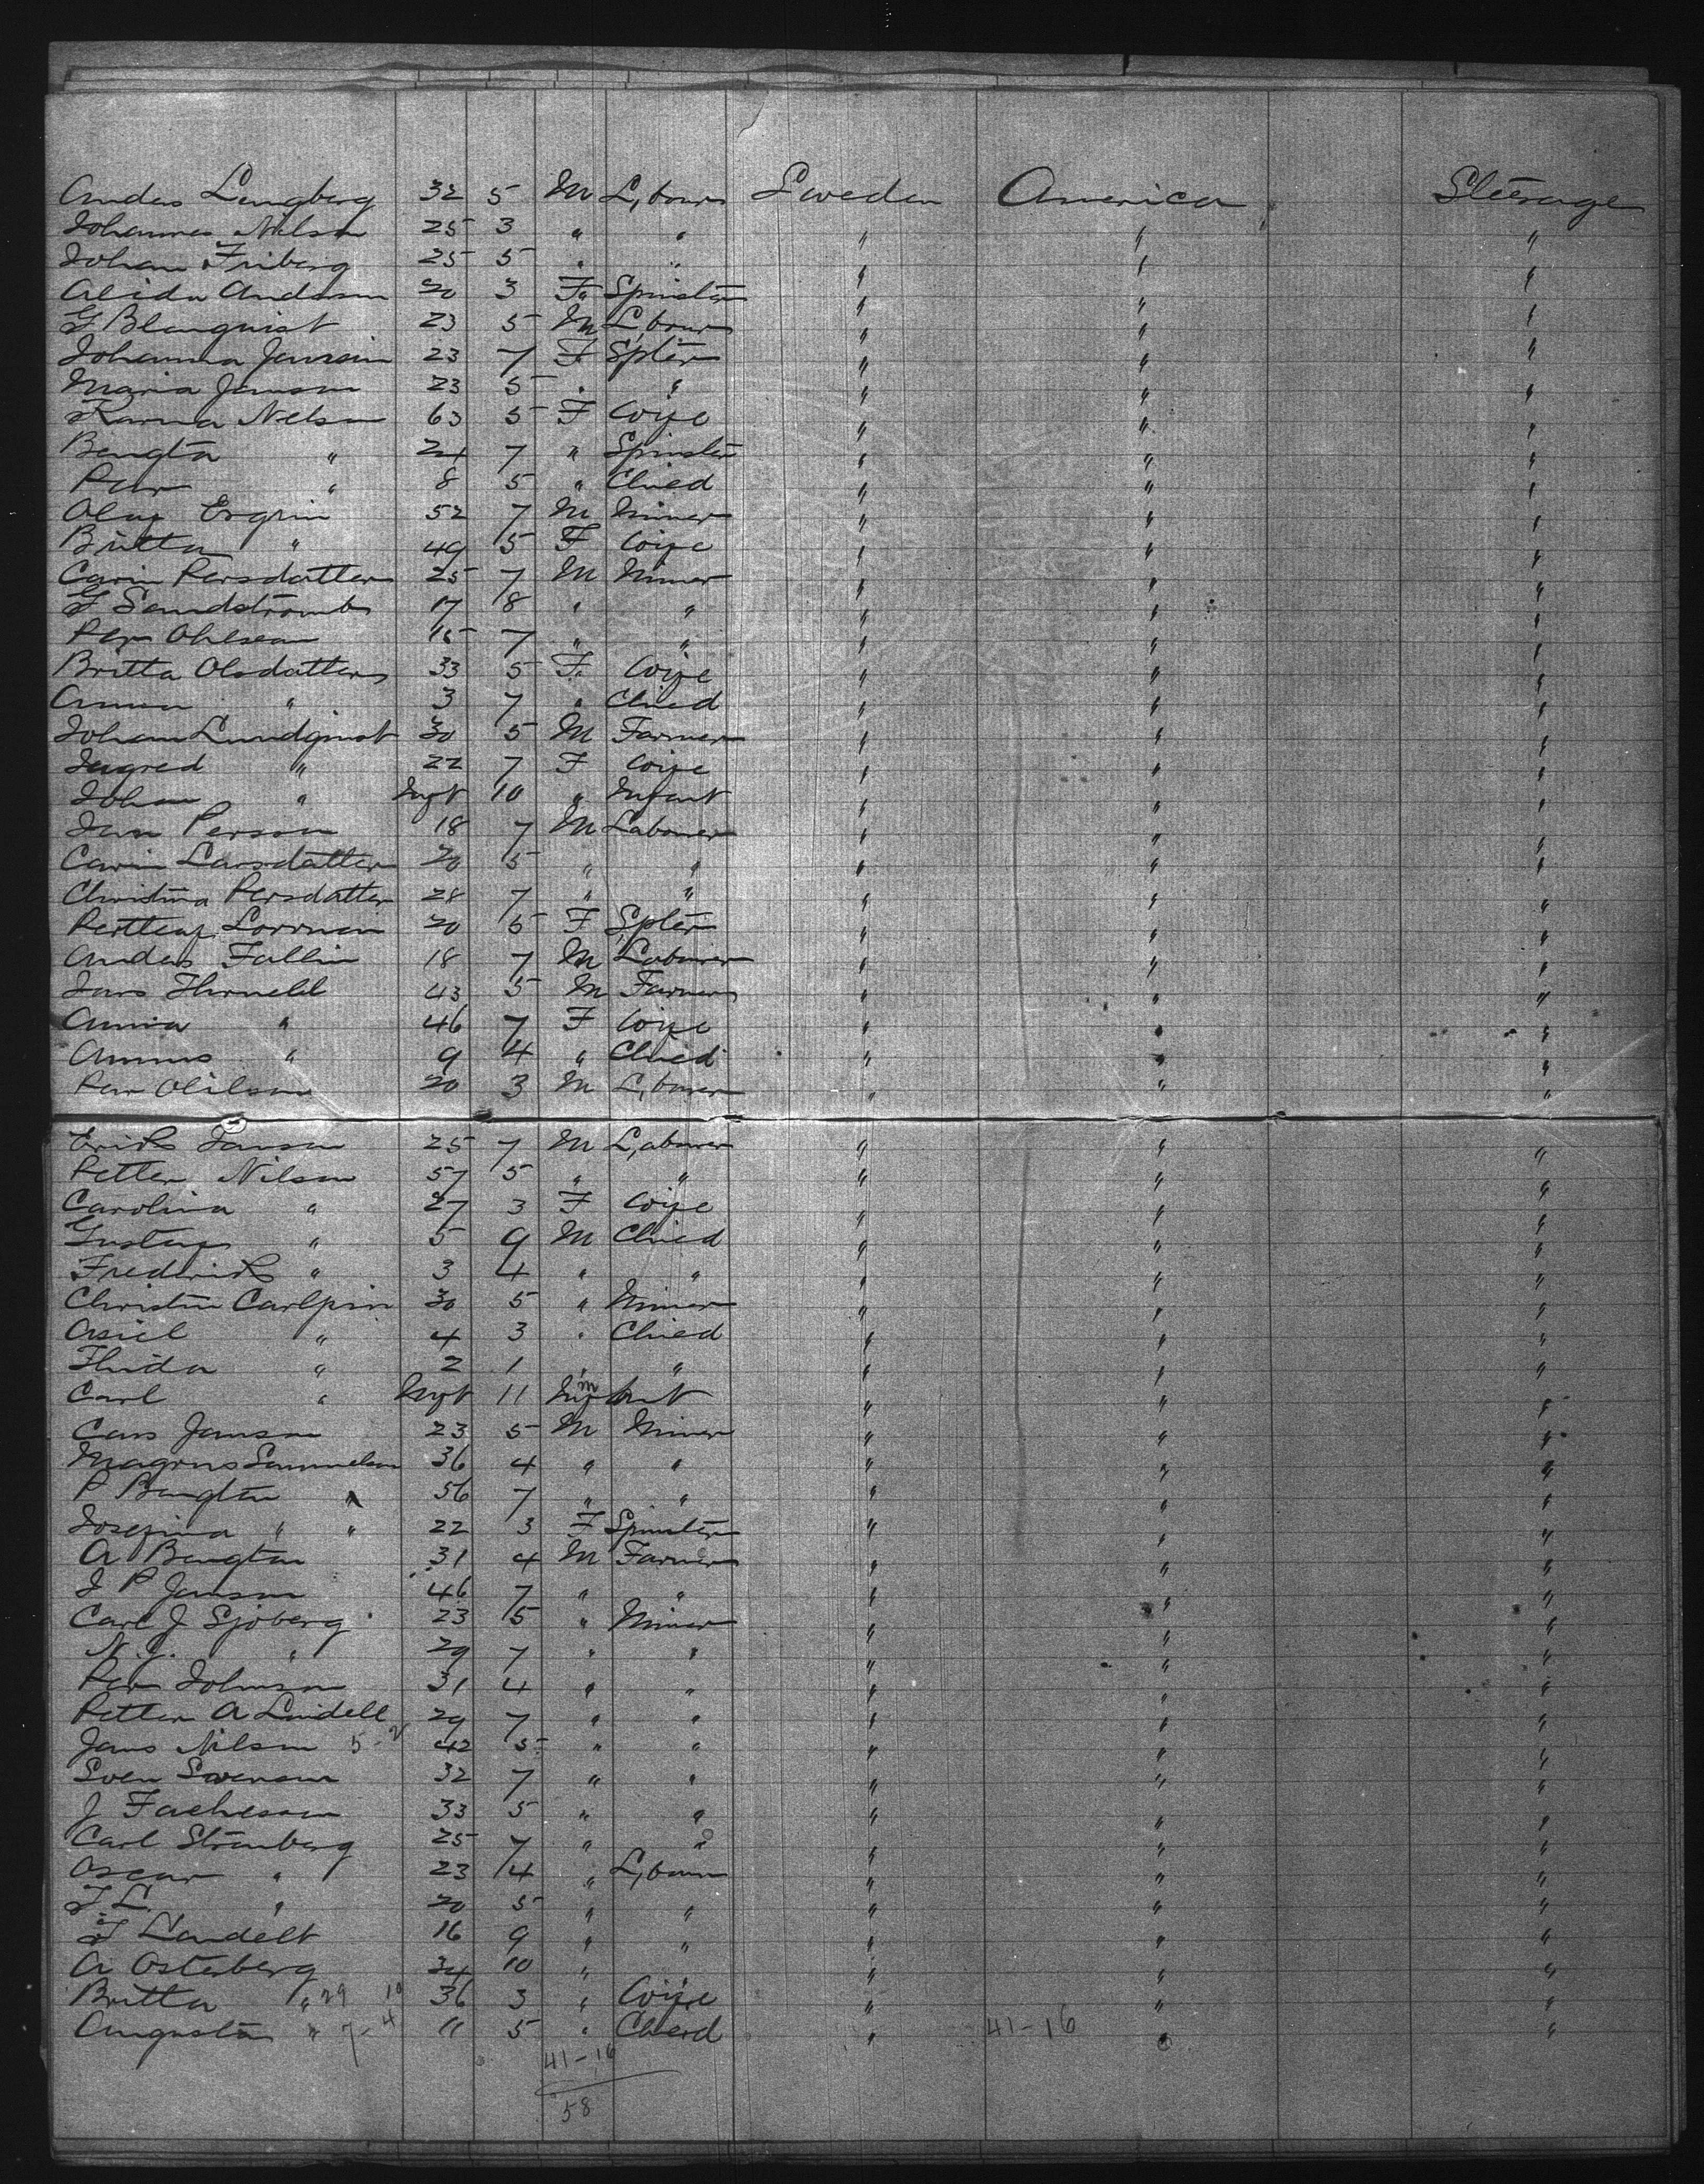 Andes Lengberg 32 5 M Labour Sweden America Steerage
Johannes Nilson 25 3 " " " " "
Johan Friberg 25 5 " " " " "
Alida Anderson 20 3 F Spinster " " "
G Blanquist 23 5 M Labour " " "
Johanna Jansen 23 7 F Spter " " "
Maria Janson 23 5 " " " " "
Karna Nelson 63 5 F Wife " " "
Bengta " 24 7 " Spinster " " "
Per " 8 5 " Child " " "
Olaf Ergrin 52 7 M Miner " " "
Britta " 49 5 F Wife " " "
Carin Persdatter 25 7 M Miner " " "
G Sandstromb 17 8 " " " " "
Per Ohlson 15 7 " " " " "
Britta Olsdatter 33 5 F Wife " " "
Anna " 3 7 " Child " " "
Johan Lundqust 30 5 M Farmer " " "
Ingred " 22 7 F Wife " " "
Johan " Inft 10 " Infant " " "
Jan Person 18 7 M Labourer " " "
Carin Larsdatter 20 5 " " " " "
Christina Persdatter 28 7 " " " " "
Lorrman 20 5 F Spter " " "
Andes Fallin 18 7 M Labourer " " "
Jars Thrneld 43 5 M Farmer " " "
Anna " 46 7 F Wife " " "
Annus " 9 4 " Child " " "
Per Olilson 20 3 M Labourer " " "
Erick Janson 25 7 M Labourer " " "
Petter Nilson 57 5 " " " " "
Carolina " 27 3 F Wife " " "
Gustaf " 5 9 M Child " " "
Frederick " 3 4 " " " " "
Christin Carlprin 30 5 " Miner " " "
Asiel " 4 3 " Child " " "
Thida " 2 1 " " " " "
Carl " Inft 11 M Infant " " "
Cars Janson 23 5 M Miner " " "
Magnus Samuelson 36 4 " " " " "
P Bengtson 56 7 " " " " "
Josefina " " 22 3 F Spinster " " "
A Bengtson 31 4 M Farmer " " "
J P Janson 46 7 " " " " "
Carl J Sjoberg 23 5 " Miner " " "
N. J. " 29 7 " " " " "
Per Johnson 31 4 " " " " "
Petter A Lindell 29 7 " " " " "
Jans Nilson 5-2 42 5 " " " " "
Sven Swenson 32 7 " " " " "
J Facheson 33 5 " " " " "
Carl Stromberg 25 7 " " " " "
Oscar " 23 4 " Labour " " "
F. L. " 20 5 " " " " "
F Landelt 16 9 " " " " "
A Osterberg 34 10 " " " "
Britta " 29 10 36 3 " Wife " " "
Augusta " 7-4 11 5 " Child " 41-16 " "
41-16
58